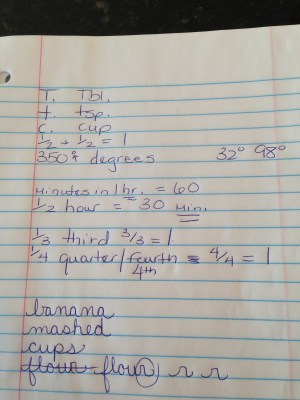 T. Tbl.
t. tsp.
c. cup
1/2 + 1/2 = 1
350° degrees 32° 98°
minutes in 1 hr. = 60
1/2 hour = 30 min.
1/3 third 3/3 = 1
1/4 quarter/fourth = 4/4 = 1
4th
banana
mashed
cups
flour flour r r